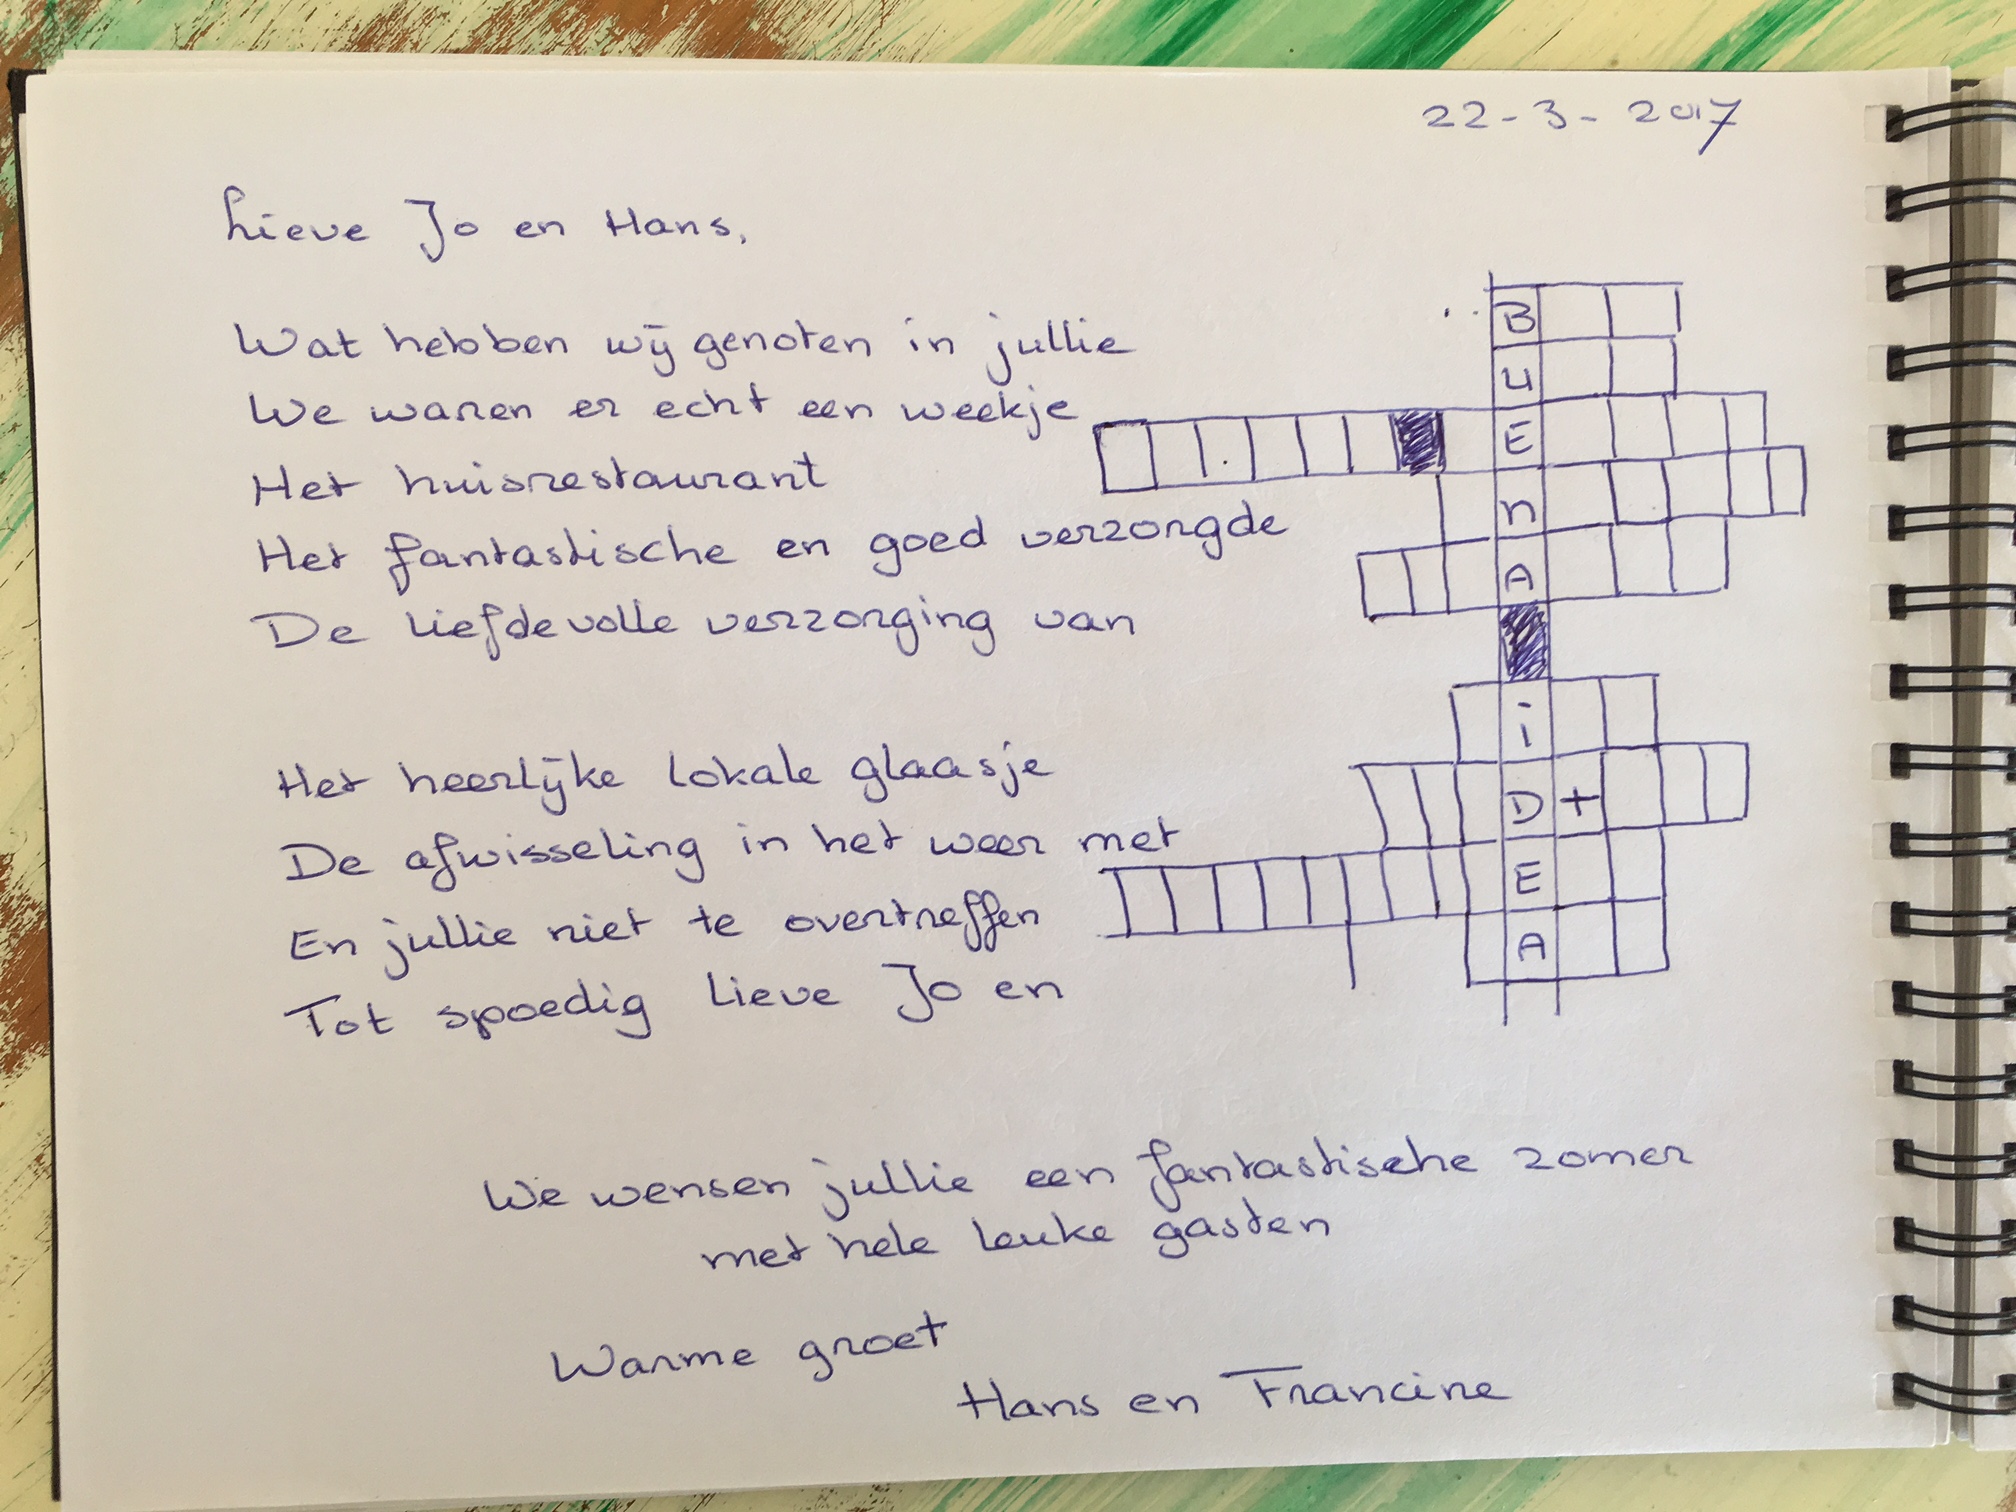 22-3-2017
Lieve Jo en Hans,
Wat hebben wij genoten in jullie
We waren er echt een weekje
Het huisrestaurant
Het fantastische en goed verzorgde
De liefdevolle verzorging van
Het heerlijke lokale glaasje
De afwisseling in het weer met
En jullie niet te overtreffen
Tot spoedig lieve Jo en
B
U
E
n
A
i
D +
E
A
We wensen jullie een fantastische zomer
met hele leuke gasten
Warme groet
Hans en Francine